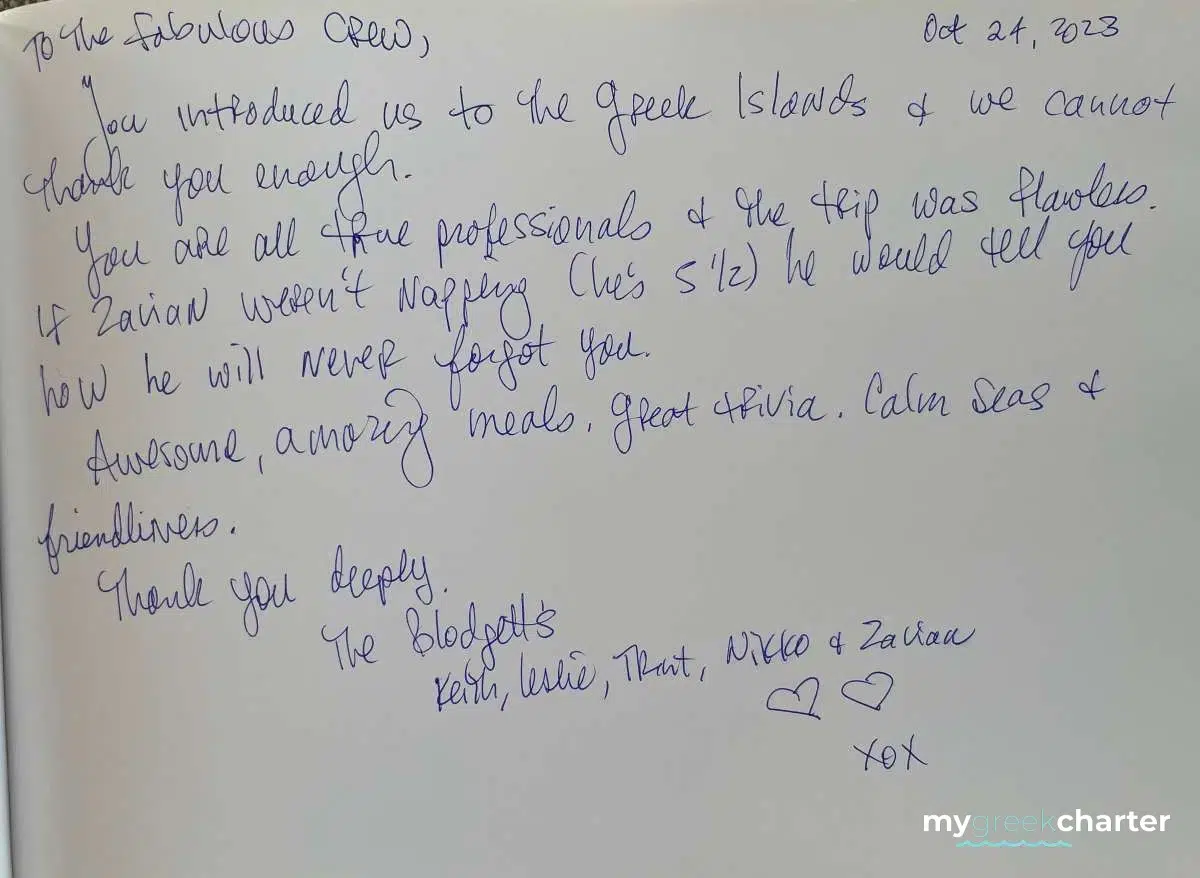 To the fabulous Crew,
Oct 24, 2023
You introduced us to the Greek Islands & we cannot
thank you enough.
You are all true professionals & the trip was flawless.
If Zavian weren't napping (he's 5 1/2) he would tell you
how he will never forgot you.
Awesome, amazing meals, great trivia. Calm seas &
friendliness.
Thank you deeply.
The Blodgett's
Keith, Leslie, Trent, Nikko & Zavian
XOX
mygreekcharter